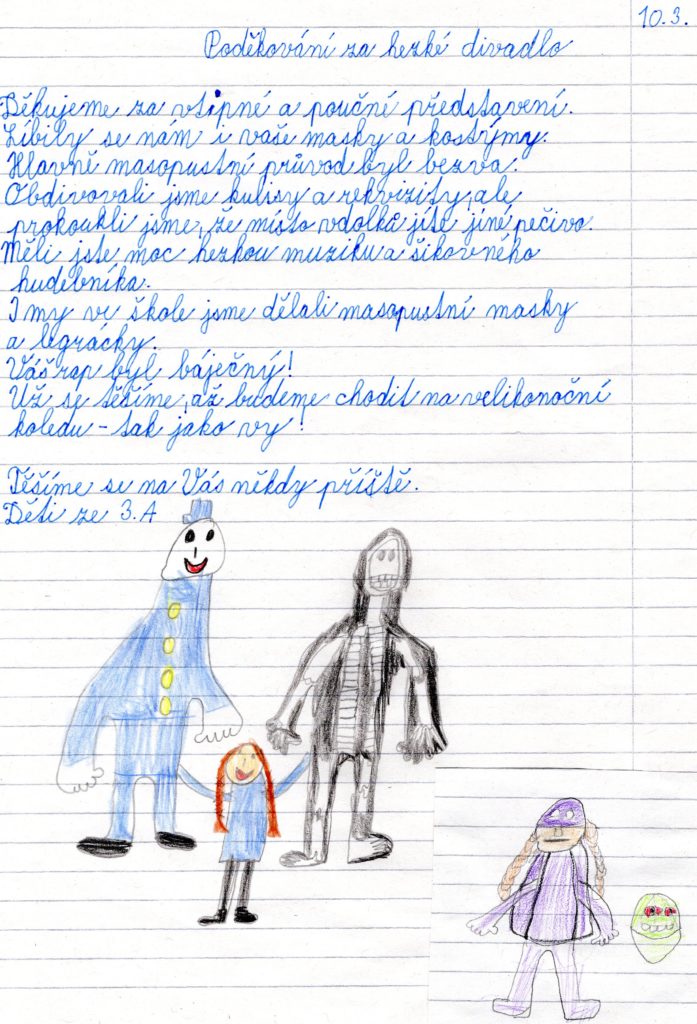 10.3.
Poděkování za hezké divadlo
Děkujeme za vtipné a poučné představení.
Líbily se nám i vaše masky a kostýmy.
Hlavně masopustní průvod byl bezva.
Obdivovali jsme kulisy a rekvizity, ale
prokoukli jsme, že místo vdolků jíte jiné pečivo.
Měli jste moc hezkou muziku a šikovného
hudebníka.
I my ve škole jsme dělali masopustní masky
a legrácky.
Váš rap byl báječný!
Už se těšíme, až budeme chodit na velikonoční
koledu - tak jako vy!
Těšíme se na Vás někdy příště.
Děti ze 3.A